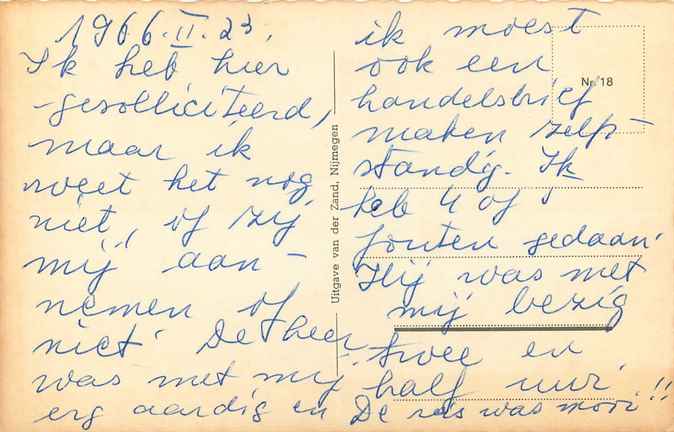 1966.II.23.
Ik heb hier
gesolliciteerd,
maar ik
weet het nog
niet, of zij
mij aan-
nemen of
niet. De heer
was met mij
erg aardig en
ik moest
ook een
handelsbrief
maken zelf-
standig. Ik
heb 4 of
fouten gedaan.
Hij was met
mij bezig
twee en
half uur.
De reis was mooi!!
Nr 18
Uitgave van der Zand, Nijmegen